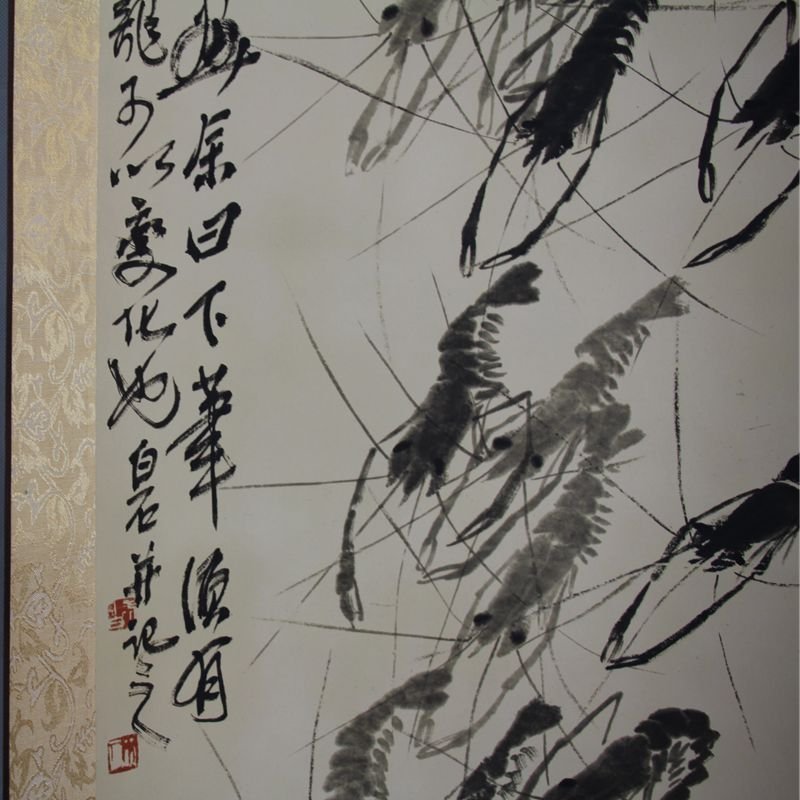 余曰下筆須有
龍子以變化也白石并記之